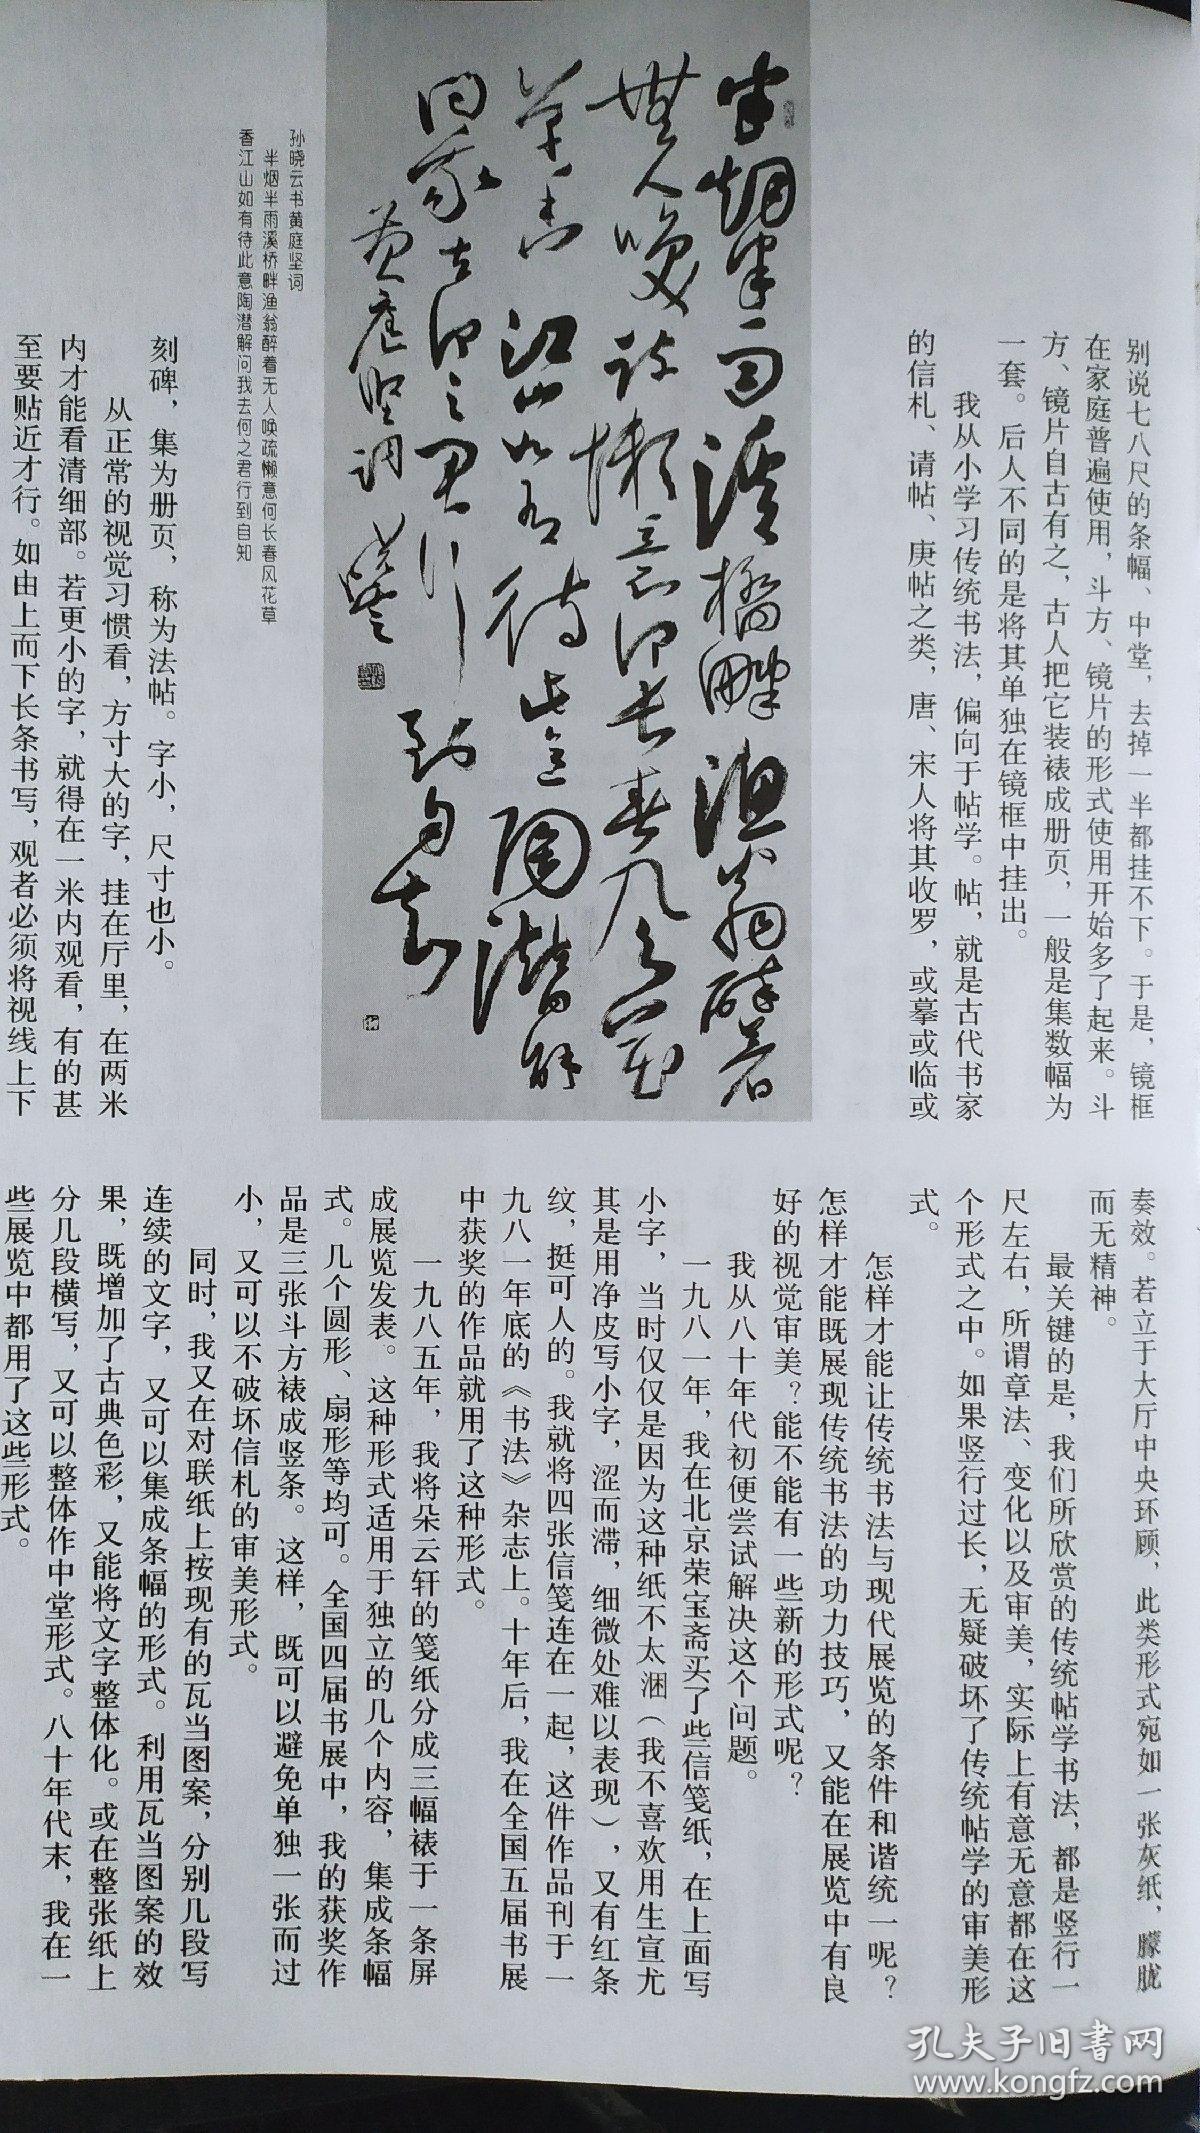 别说七八尺的条幅、中堂，去掉一半都挂不下。于是，镜框
在家庭普遍使用，斗方、镜片的形式使用开始多了起来。斗
方、镜片自古有之，古人把它装裱成册页，一般是集数幅为
一套。后人不同的是将其单独在镜框中挂出。
我从小学习传统书法，偏向于帖学。帖，就是古代书家
的信札、请帖、庚帖之类，唐、宋人将其收罗，或摹或临或
半烟半雨溪桥畔渔翁醉着
无人唤疏懒意何长春风花
草香江山如有待此意陶潜解
问我去何之君行到自知
黄庭坚词晓云
孙晓云书黄庭坚词
半烟半雨溪桥畔渔翁醉着无人唤疏懒意何长春风花草
香江山如有待此意陶潜解问我去何之君行到自知
刻碑，集为册页，称为法帖。字小，尺寸也小。
从正常的视觉习惯看，方寸大的字，挂在厅里，在两米
内才能看清细部。若更小的字，就得在一米内观看，有的甚
至要贴近才行。如由上而下长条书写，观者必须将视线上下
奏效。若立于大厅中央环顾，此类形式宛如一张灰纸，朦胧
而无精神。
最关键的是，我们所欣赏的传统帖学书法，都是竖行一
尺左右，所谓章法、变化以及审美，实际上有意无意都在这
个形式之中。如果竖行过长，无疑破坏了传统帖学的审美形
式。
怎样才能让传统书法与现代展览的条件和谐统一呢？
怎样才能既展现传统书法的功力技巧，又能在展览中有良
好的视觉审美？能不能有一些新的形式呢？
我从八十年代初便尝试解决这个问题。
一九八一年，我在北京荣宝斋买了些信笺纸，在上面写
小字，当时仅仅是因为这种纸不太洇（我不喜欢用生宣尤
其是用净皮写小字，涩而滞，细微处难以表现），又有红条
纹，挺可人的。我就将四张信笺连在一起，这件作品刊于一
九八一年底的《书法》杂志上。十年后，我在全国五届书展
中获奖的作品就用了这种形式。
一九八五年，我将朵云轩的笺纸分成三幅裱于一条屏
成展览发表。这种形式适用于独立的几个内容，集成条幅
式。几个圆形、扇形等均可。全国四届书展中，我的获奖作
品是三张斗方裱成竖条。这样，既可以避免单独一张而过
小，又可以不破坏信札的审美形式。
同时，我又在对联纸上按现有的瓦当图案，分别几段写
连续的文字，又可以集成条幅的形式。利用瓦当图案的效
果，既增加了古典色彩，又能将文字整体化。或在整张纸上
分几段横写，又可以整体作中堂形式。八十年代末，我在一
些展览中都用了这些形式。
孔夫子旧书网
www.kongfz.com